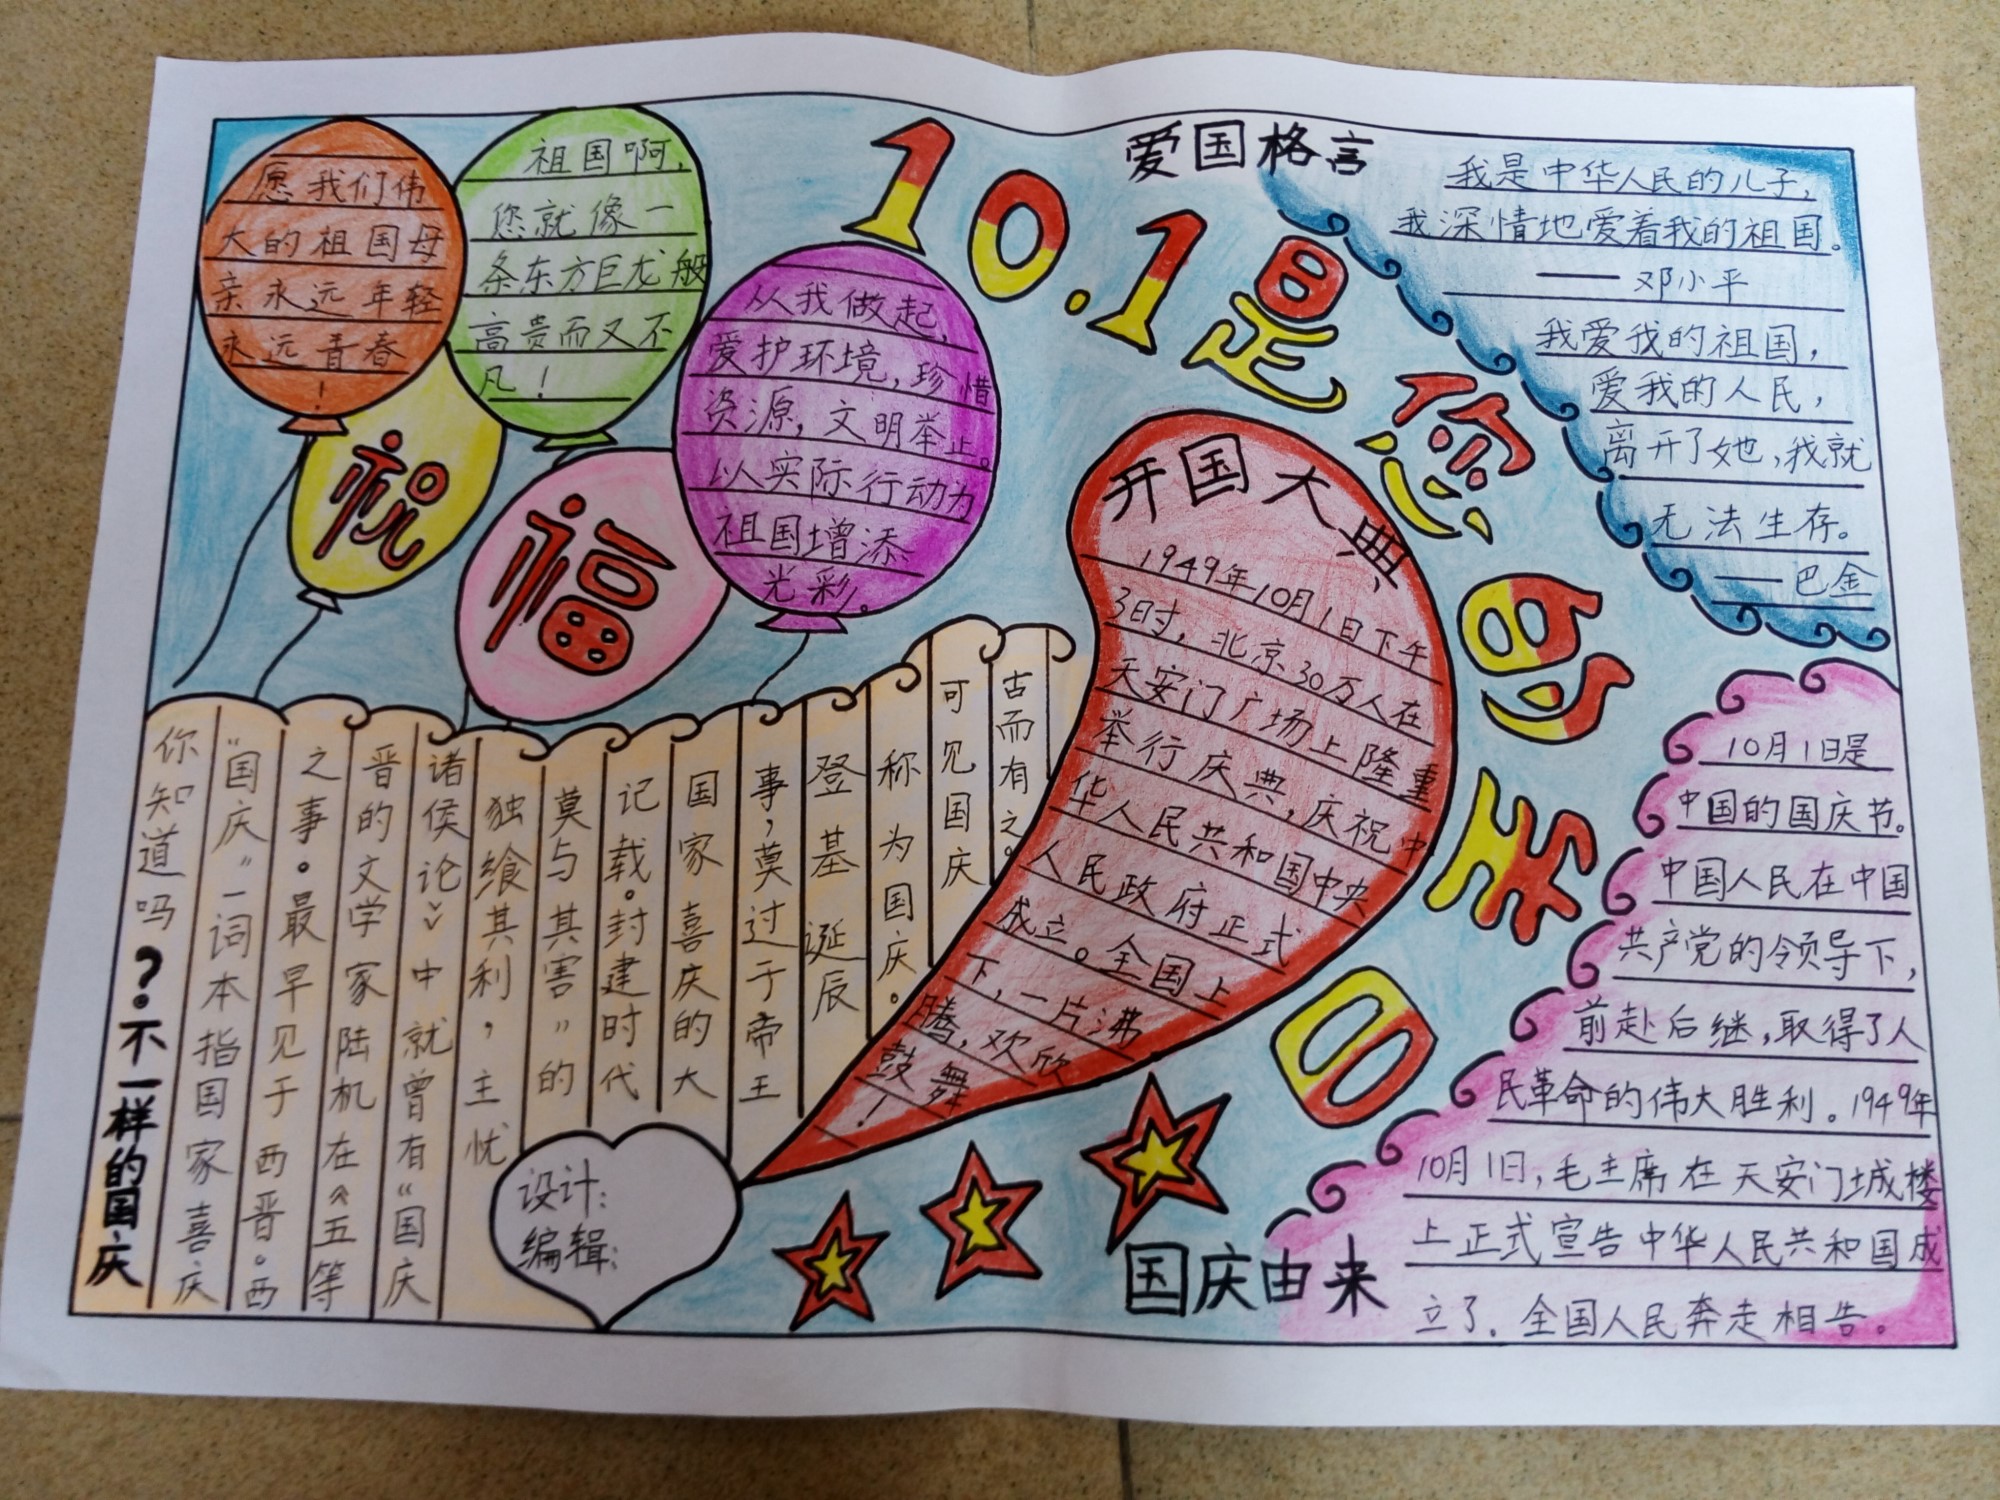 愿我们伟
大的祖国母
亲永远年轻
永远青春
！
祖国啊，
您就像一
条东方巨龙般
高贵而又不
凡！
从我做起，
爱护环境，珍惜
资源，文明举止。
以实际行动为
祖国增添
光彩。
祝
福
10.1是您的生日
爱国格言
我是中华人民的儿子，
我深情地爱着我的祖国。
——邓小平
我爱我的祖国，
爱我的人民，
离开了她，我就
无法生存。
——巴金
开国大典
1949年10月1日下午
3时，北京30万人在
天安门广场上隆重
举行庆典，庆祝中
华人民共和国中央
人民政府正式
成立。全国上
下，一片沸
腾，欢欣
鼓舞
！
你知道吗？不一样的国庆
“国庆”一词本指国家喜庆
之事。最早见于西晋。西
晋的文学家陆机在《五等
诸侯论》中就曾有“国庆
独飨其利，主忧
莫与其害”的
记载。封建时代
国家喜庆的大
事，莫过于帝王
登基诞辰
称为国庆。
可见国庆
古而有之。
设计：
编辑：
国庆由来
10月1日是
中国的国庆节。
中国人民在中国
共产党的领导下，
前赴后继，取得了人
民革命的伟大胜利。1949年
10月1日，毛主席在天安门城楼
上正式宣告中华人民共和国成
立了．全国人民奔走相告。